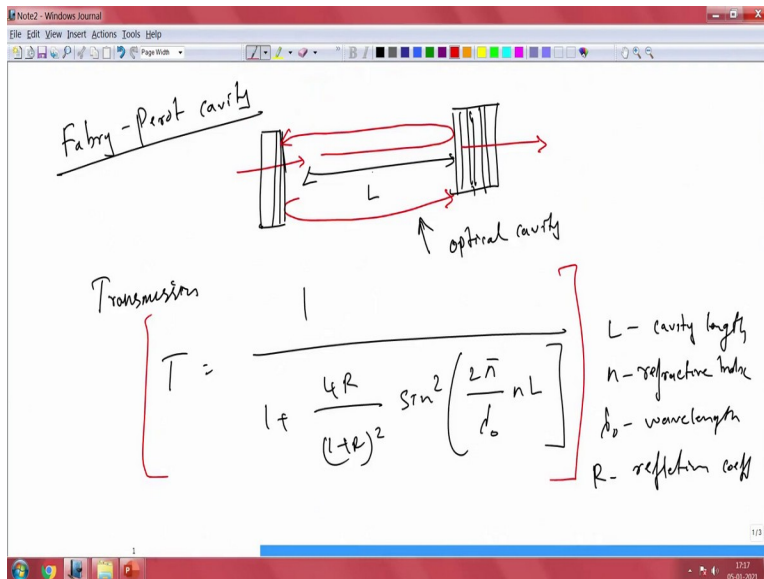 Note2 - Windows Journal
File Edit View Insert Actions Tools Help
Page Width
B I
Fabry-Perot cavity
L
optical cavity
Transmission
T = 1 / 1 + 4R/(1-R)² sin² (2π/λ₀ nL]
L - cavity length
n - refractive index
λ₀ - wavelength
R - reflection coeff
1
1/3
17:17
05-01-2021